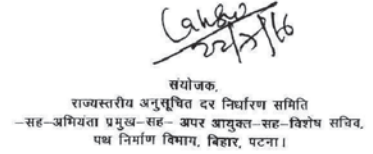 संयोजक,
राज्यस्तरीय अनुसूचित दर निर्धारण समिति
-सह-अभियंता प्रमुख-सह- अपर आयुक्त-सह-विशेष सचिव,
पथ निर्माण विभाग, बिहार, पटना।